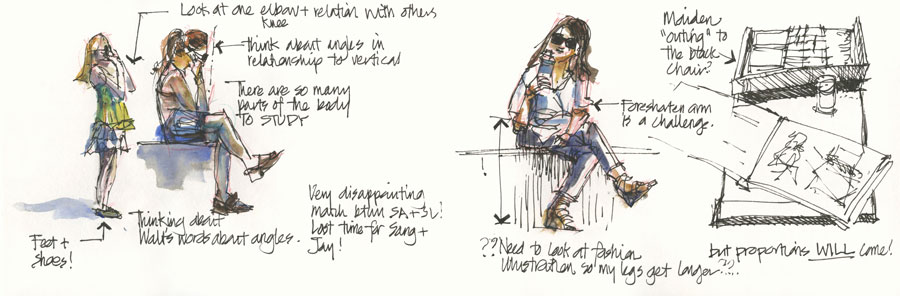 Look at one elbow + relation with others
knee
think about angles in
relationship to vertical
There are so many
parts of the body
TO STUDY
Feet +
shoes!
Thinking about
Walt's words about angles.
Very disappointing
match btwn SA + SL!
Last time for Sang +
Jay!
Maiden
"outing" to
the black
chair?
Foreshorten arm
is a challenge.
?? Need to look at fashion
illustration so my legs get longer??..
but proportions WILL come!